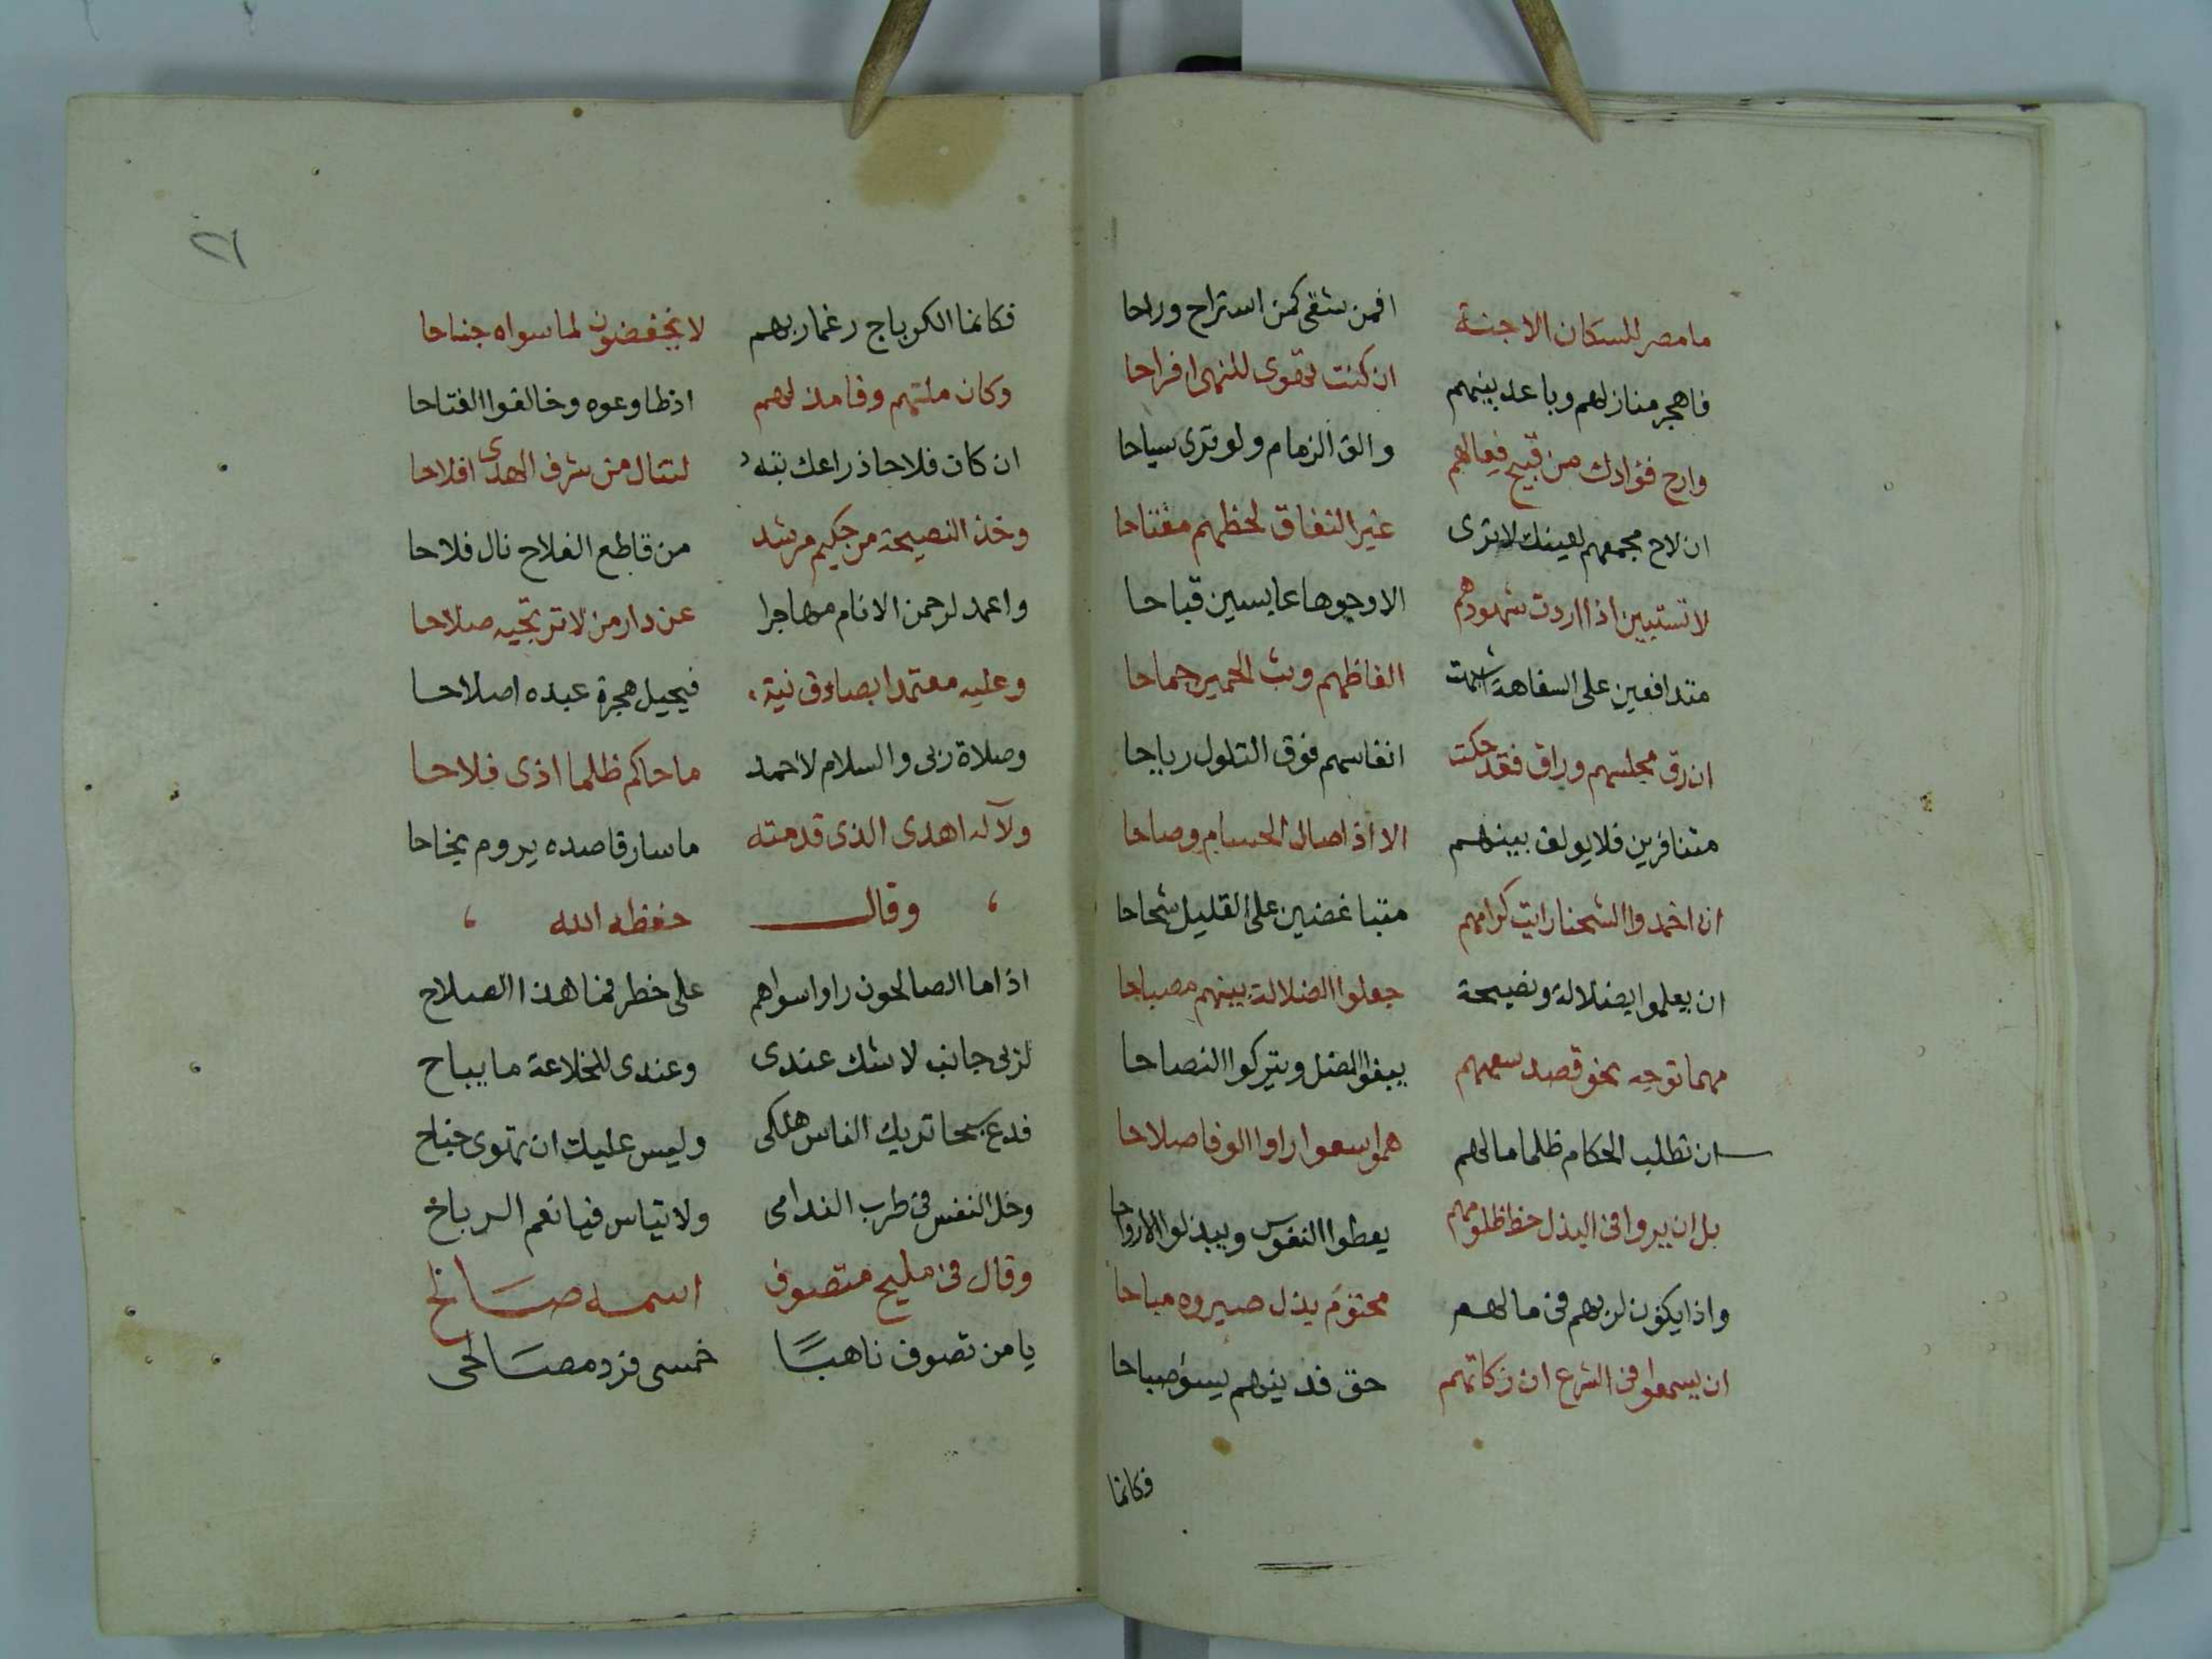 ما مصر للسكان الا جنة افمن شقى كمن استراح وراحا
فاهجر منازلهم وباعد بينهم ان كنت تقوى للنهى افراحا
وارح فؤادك من قبيح فعالهم والق الزمام ولو ترى سياحا
ان لاح مجمعهم لعينك لا ترى غير النفاق لحظهم مفتاحا
لا تستبين اذا اردت شهودهم الا وجوها عابسين قباحا
متدافعين على السفاهة الفاظهم وبث الحمير جماحا
ان رق مجلسهم وراق فقد حكت انفاسهم فوق التلول رياحا
متنافرين فلا يولف بينهم الا اذا صال الحسام وصاحا
ان اخمدوا الشحنا رايت كرامهم متباغضين على القليل شحاحا
ان يعلموا بضلالة ونصيحة جعلوا الضلالة بينهم مصباحا
مهما توجه نحو قصد سعيهم يبغوا المضل ويتركوا النصاحا
ان تطلب الحكام ظلما مالهم هموا سعوا راوا الوفا صلاحا
بل ان يروا فى البذل حظ ظلومهم يعطوا النفوس ويبذلوا الارواحا
واذا يكون لربهم فى مالهم محتوم بذل صيروه مباحا
ان يسمعوا فى الشرع ان زكاتهم حق فدينهم يسؤ صباحا
فكانما
٢٦
فكانما الكرباج رغما ربهم لا يخفضون لما سواه جناحا
وكان ملتهم وفا مذلهم اذ طاوعوه وخالفوا الفتاحا
ان كان فلاحا ذراعك بته لتنال من شرف الهدى افلاحا
وخذ النصيحة من حكيم مرشد من قاطع الفلاح نال فلاحا
واعمد لرحمن الانام مهاجرا عن دار من لا ترتجيه صلاحا
وعليه معتمدا بصادق نية فيحيل هجرة عبده اصلاحا
وصلاة ربى والسلام لاحمد ما حاكم ظلما اذى فلاحا
ولآله اهدى الذى قدمته ما سار قاصده يروم نجاحا
وقال حفظه الله
اذا ما الصالحون راوا سواهم على خطر فما هذا الصلاح
لربى جانب لا شك عندى وعندى للخلاعة ما يباح
فدع سبحا تريك الناس هلكى وليس عليك ان تهوى جناح
وخل النفس فى طرب الندامى ولا تياس فيا نعم الرباح
وقال فى مليح متصوف اسمه صالح
يا من تصوف ناهبا خمسى فزد مصالحى